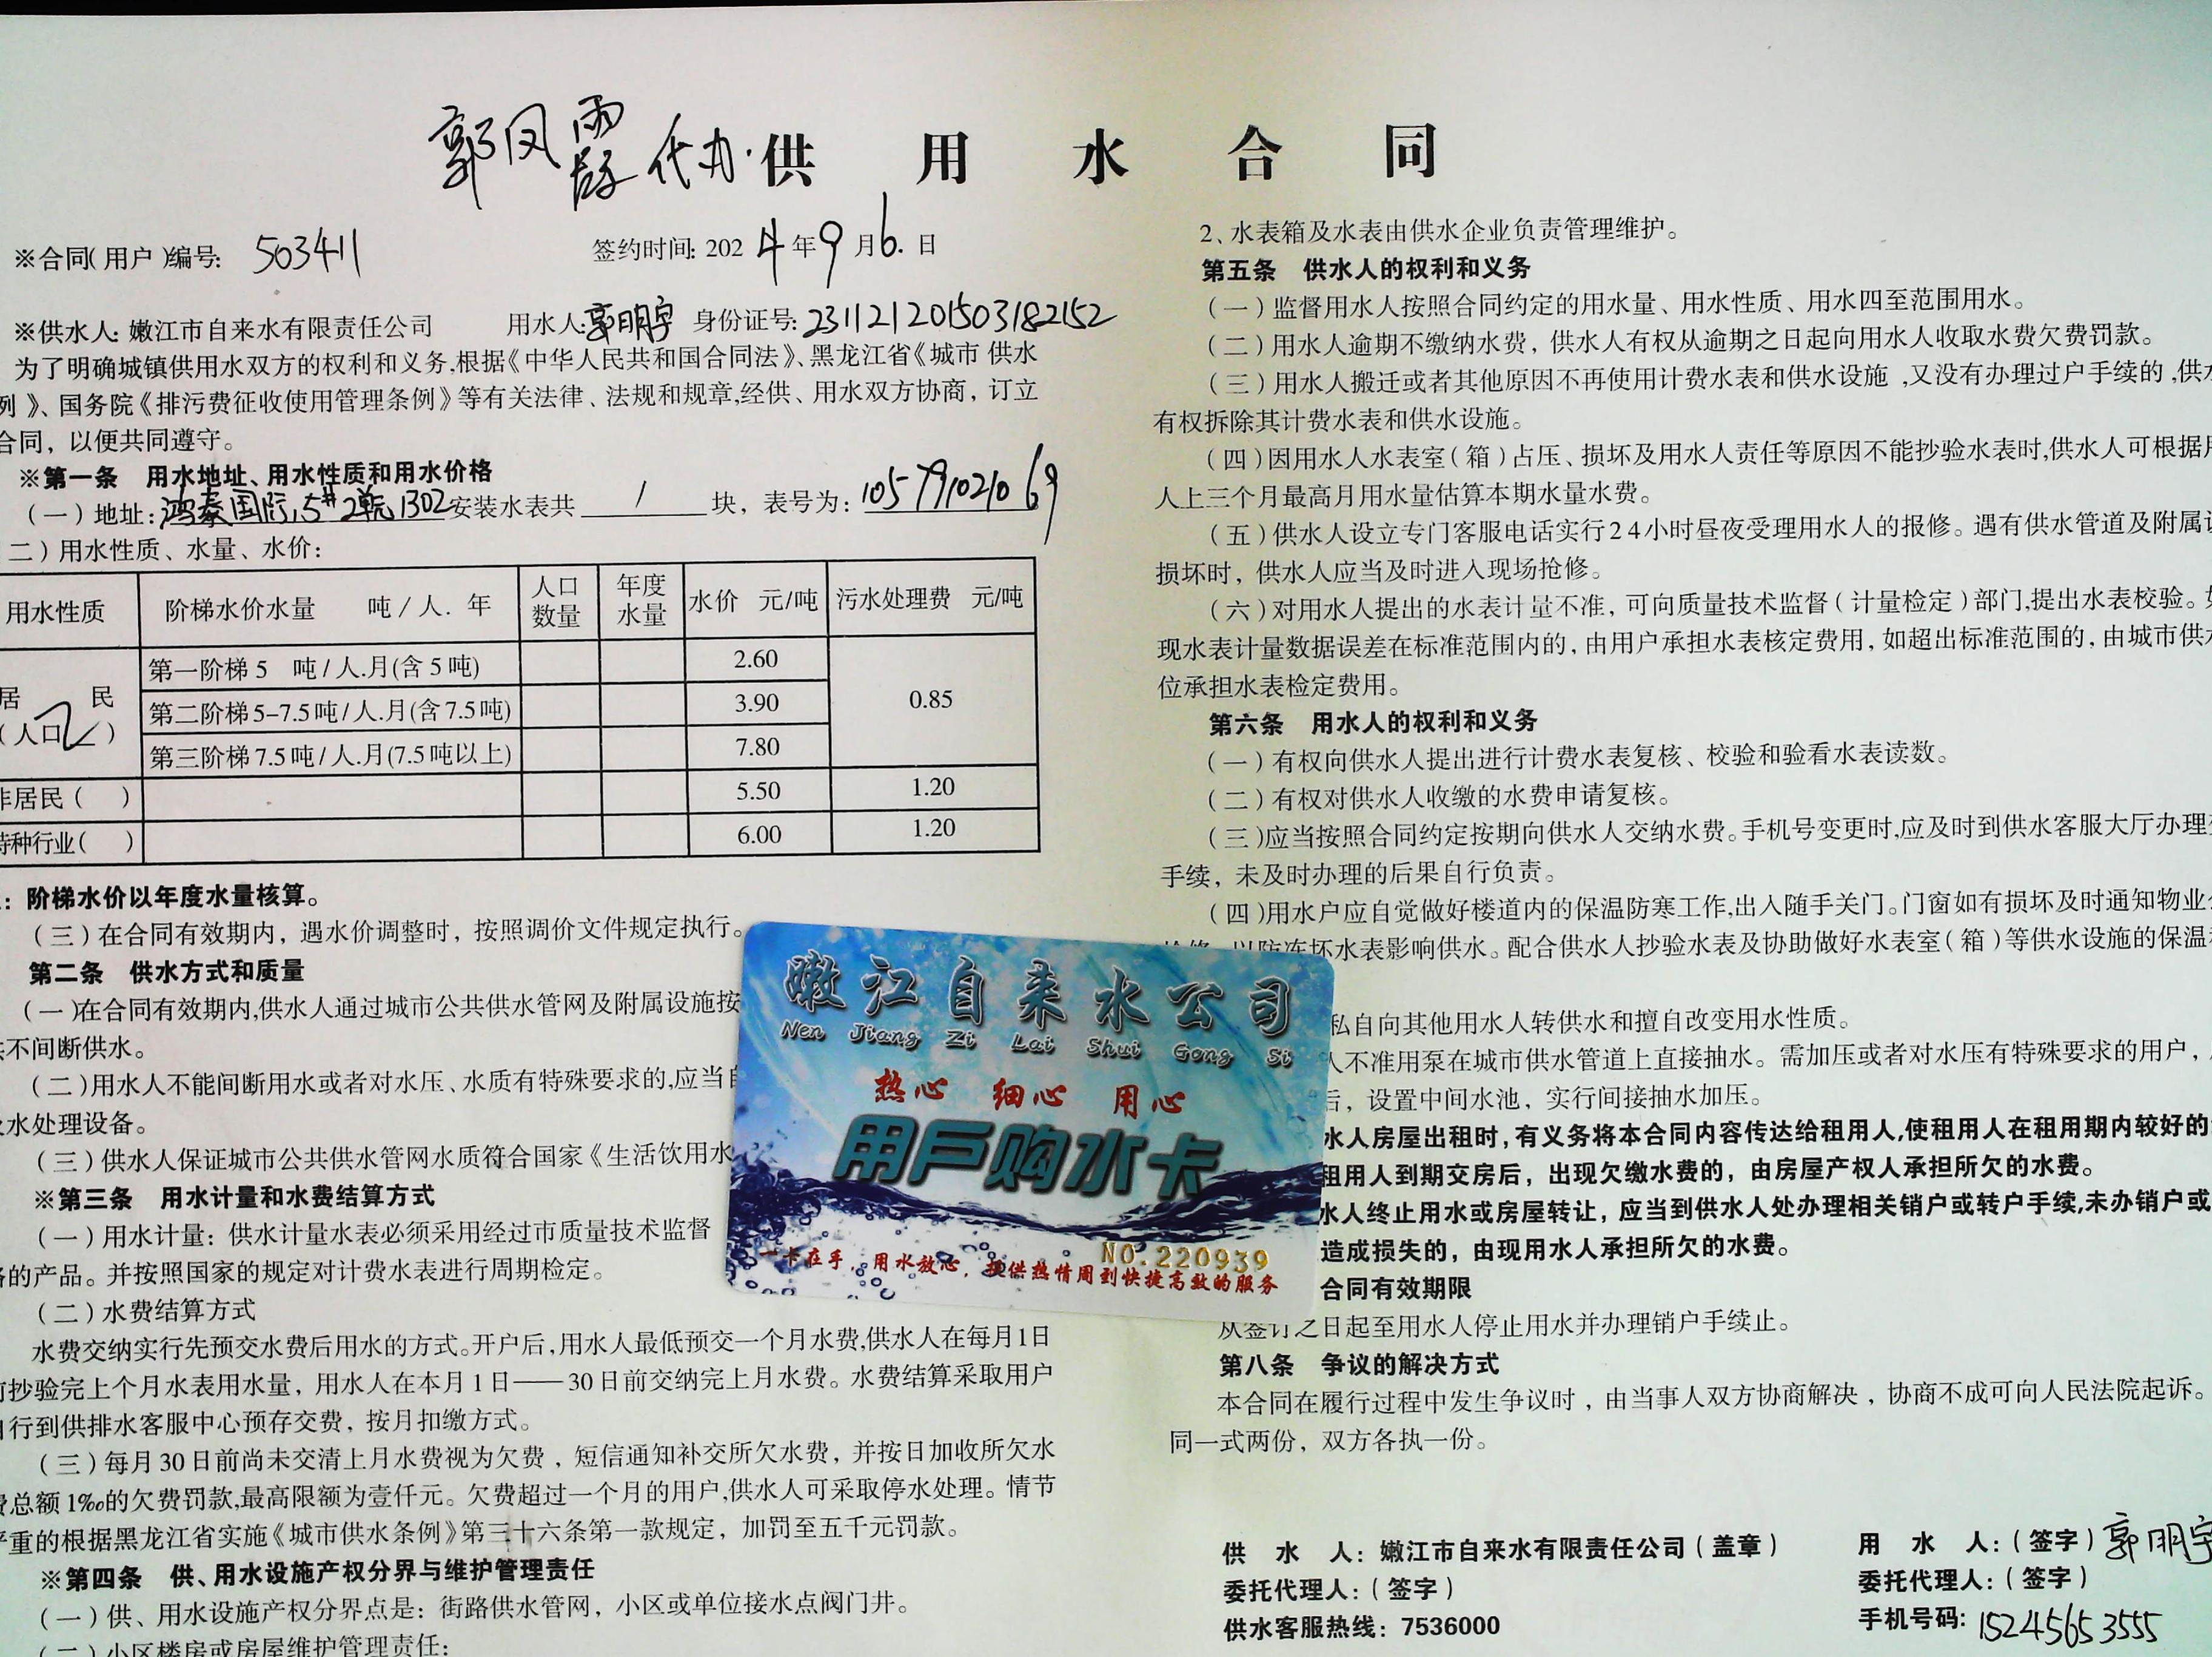 郭凤霞代办.供 用 水 合 同
※合同(用户)编号: 503411 签约时间: 2024年9月6.日
※供水人: 嫩江市自来水有限责任公司 用水人:郭明宇 身份证号:231121201503182152
为了明确城镇供用水双方的权利和义务,根据《中华人民共和国合同法》、黑龙江省《城市 供水
例》、国务院《排污费征收使用管理条例》等有关法律、法规和规章,经供、用水双方协商，订立
合同，以便共同遵守。
※第一条 用水地址、用水性质和用水价格
(一)地址:鸿泰国际15#2单元1302安装水表共 1 块，表号为:
二)用水性质、水量、水价:
用水性质 阶梯水价水量 吨/人. 年 人口数量 年度水量 水价 元/吨 污水处理费 元/吨
居 民 (人口2)
第一阶梯 5 吨/人.月(含 5 吨) 2.60 0.85
第二阶梯 5-7.5 吨/人.月(含 7.5 吨) 3.90
第三阶梯 7.5 吨/人.月(7.5 吨以上) 7.80
非居民( ) 5.50 1.20
特种行业( ) 6.00 1.20
: 阶梯水价以年度水量核算。
(三)在合同有效期内，遇水价调整时，按照调价文件规定执行。
第二条 供水方式和质量
(一)在合同有效期内,供水人通过城市公共供水管网及附属设施按
不间断供水。
(二)用水人不能间断用水或者对水压、水质有特殊要求的,应当自
水处理设备。
(三)供水人保证城市公共供水管网水质符合国家《生活饮用水
※第三条 用水计量和水费结算方式
(一)用水计量：供水计量水表必须采用经过市质量技术监督
的产品。并按照国家的规定对计费水表进行周期检定。
(二)水费结算方式
水费交纳实行先预交水费后用水的方式。开户后,用水人最低预交一个月水费,供水人在每月1日
前抄验完上个月水表用水量，用水人在本月 1 日——30 日前交纳完上月水费。水费结算采取用户
自行到供排水客服中心预存交费，按月扣缴方式。
(三)每月 30 日前尚未交清上月水费视为欠费，短信通知补交所欠水费，并按日加收所欠水
费总额 1‰的欠费罚款,最高限额为壹仟元。欠费超过一个月的用户,供水人可采取停水处理。情节
严重的根据黑龙江省实施《城市供水条例》第三十六条第一款规定，加罚至五千元罚款。
※第四条 供、用水设施产权分界与维护管理责任
(一)供、用水设施产权分界点是：街路供水管网，小区或单位接水点阀门井。
(二)小区楼房或房屋维护管理责任:
2、水表箱及水表由供水企业负责管理维护。
第五条 供水人的权利和义务
(一)监督用水人按照合同约定的用水量、用水性质、用水四至范围用水。
(二)用水人逾期不缴纳水费，供水人有权从逾期之日起向用水人收取水费欠费罚款。
(三)用水人搬迁或者其他原因不再使用计费水表和供水设施,又没有办理过户手续的,供水
有权拆除其计费水表和供水设施。
(四)因用水人水表室(箱)占压、损坏及用水人责任等原因不能抄验水表时,供水人可根据用
人上三个月最高月用水量估算本期水量水费。
(五)供水人设立专门客服电话实行24小时昼夜受理用水人的报修。遇有供水管道及附属设
损坏时，供水人应当及时进入现场抢修。
(六)对用水人提出的水表计量不准，可向质量技术监督(计量检定)部门,提出水表校验。如
现水表计量数据误差在标准范围内的,由用户承担水表核定费用，如超出标准范围的,由城市供水
位承担水表检定费用。
第六条 用水人的权利和义务
(一)有权向供水人提出进行计费水表复核、校验和验看水表读数。
(二)有权对供水人收缴的水费申请复核。
(三)应当按照合同约定按期向供水人交纳水费。手机号变更时,应及时到供水客服大厅办理变
手续，未及时办理的后果自行负责。
(四)用水户应自觉做好楼道内的保温防寒工作,出入随手关门。门窗如有损坏及时通知物业公
以防冻坏水表影响供水。配合供水人抄验水表及协助做好水表室(箱)等供水设施的保温
私自向其他用水人转供水和擅自改变用水性质。
人不准用泵在城市供水管道上直接抽水。需加压或者对水压有特殊要求的用户，
后，设置中间水池，实行间接抽水加压。
水人房屋出租时,有义务将本合同内容传达给租用人,使租用人在租用期内较好的
租用人到期交房后，出现欠缴水费的，由房屋产权人承担所欠的水费。
水人终止用水或房屋转让，应当到供水人处办理相关销户或转户手续,未办销户或
造成损失的，由现用水人承担所欠的水费。
合同有效期限
从签订之日起至用水人停止用水并办理销户手续止。
第八条 争议的解决方式
本合同在履行过程中发生争议时，由当事人双方协商解决，协商不成可向人民法院起诉。
同一式两份，双方各执一份。
供 水 人：嫩江市自来水有限责任公司(盖章)
委托代理人：(签字)
供水客服热线：7536000
用 水 人：(签字)郭明宇
委托代理人：(签字)
手机号码: 15245653555
嫩江自来水公司
Nen Jiang Zi Lai Shui Gong Si
热心 细心 用心
用户购水卡
NO.220939
一卡在手，用水放心，提供热情周到快捷高效的服务